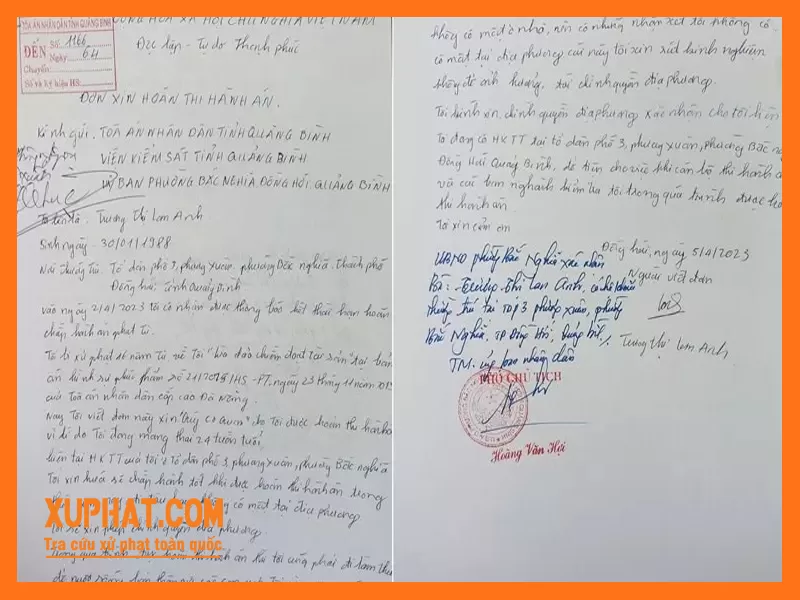 CỘNG HOÀ XÃ HỘI CHỦ NGHĨA VIỆT NAM
Độc lập - Tự do Hạnh phúc
TOÀ ÁN NHÂN DÂN TỈNH QUẢNG BÌNH
ĐẾN Số: 1166
Ngày: 6/4
Chuyển:
Số và ký hiệu HS:
ĐƠN XIN HOÃN THI HÀNH ÁN.
Kính gửi: TOÀ ÁN NHÂN DÂN TỈNH QUẢNG BÌNH
VIỆN KIỂM SÁT TỈNH QUẢNG BÌNH
UỶ BAN PHƯỜNG BẮC NGHĨA ĐỒNG HỚI QUẢNG BÌNH
Tôi tên là: Trương Thị Lan Anh
Sinh ngày: 30/01/1988
Nơi thường trú: Tổ dân phố 3, phường Bắc nghĩa, Thành phố
Đồng hới: Tỉnh Quảng Bình
vào ngày 2/4/2023 tôi có nhận được thông báo hết thời hạn hoãn
chấp hành án phạt tù.
Tôi bị xử phạt năm tù về Tội "Lừa đảo chiếm đoạt tài sản" tại bản
án hình sự phúc thẩm số 21/2015/HS-PT, ngày 23 tháng 11 năm
của Toà án nhân dân cấp cao Đà Nẵng
Nay Tôi viết đơn này xin "Quý cơ quan" cho Tôi được hoãn thi hành
vì lí do Tôi đang mang thai 24 tuần tuổi
hiện tại HKTT của tôi ở Tổ dân phố 3, phường Bắc nghĩa
Tôi xin hứa sẽ chấp hành tốt khi được hoãn thi hành án trong
không có mặt tại địa phương
tôi sẽ xin phép chính quyền địa phương
thi tôi cũng phải đi làm
XUPHAT.COM
Tra cứu xử phạt toàn quốc
không có mặt ở nhà, nên có những nhận xét tôi không có
có mặt tại địa phương cái này tôi xin rút kinh nghiệm
không để ảnh hưởng, tới chính quyền địa phương.
Tôi kính xin chính quyền địa phương xác nhận cho tôi hiện
Tôi đang có HKTT tại tổ dân phố 3, phường Bắc
Đồng Hới Quảng Bình, để tiện cho việc khi cán bộ thi hành
và các ban nghành kiểm tra tôi trong quá trình được
thi hành án
Tôi xin cảm ơn
Đồng hới, ngày 5/4/2023
Người viết đơn
Trương Thị Lan Anh
UBND phường Bắc Nghĩa xác nhận
Bà: Trương Thị Lan Anh, có hộ khẩu
thường trú tại TDP 3, phường
Bắc Nghĩa, TP Đồng Hới, Quảng Bình./.
TM. Uỷ ban nhân dân
PHÓ CHỦ TỊCH
Hoàng Văn Hợi